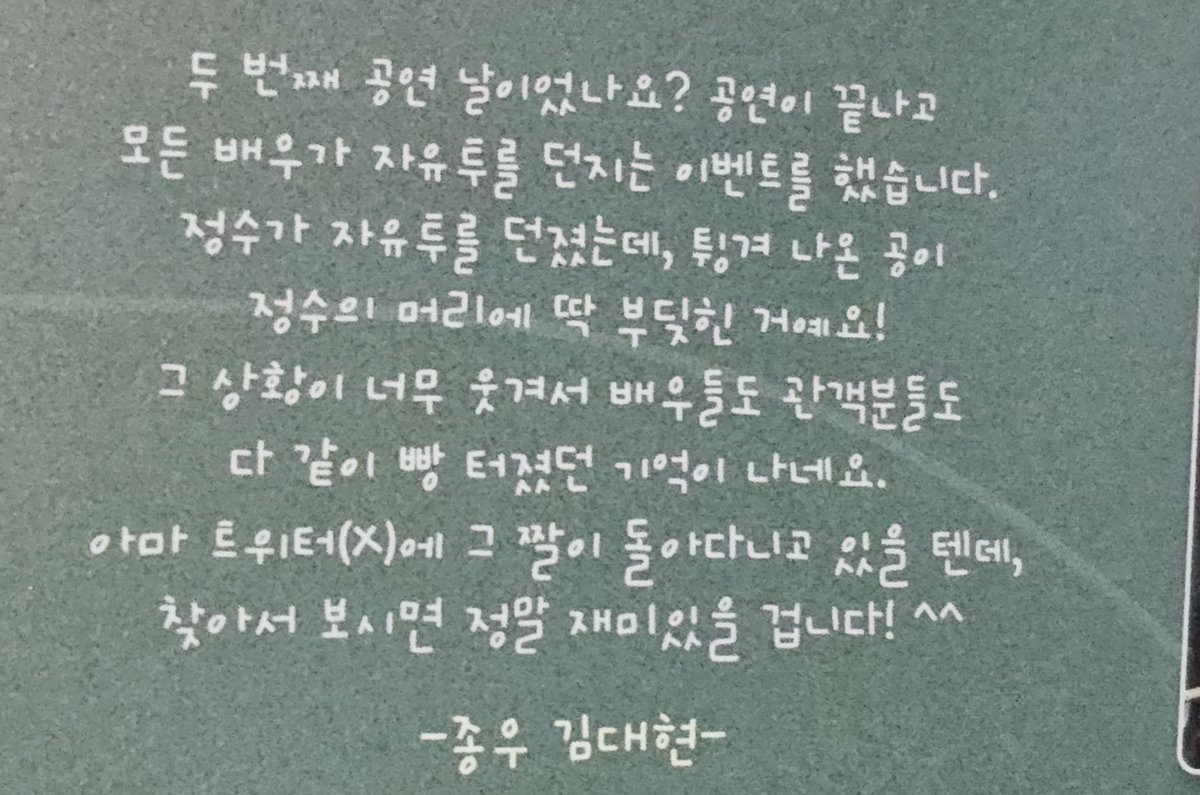 두 번째 공연 날이었나요? 공연이 끝나고
모든 배우가 자유투를 던지는 이벤트를 했습니다.
정수가 자유투를 던졌는데, 튕겨 나온 공이
정수의 머리에 딱 부딪힌 거예요!
그 상황이 너무 웃겨서 배우들도 관객분들도
다 같이 빵 터졌던 기억이 나네요.
아마 트위터(X)에 그 짤이 돌아다니고 있을 텐데,
찾아서 보시면 정말 재미있을 겁니다! ^^
-종우 김대현-